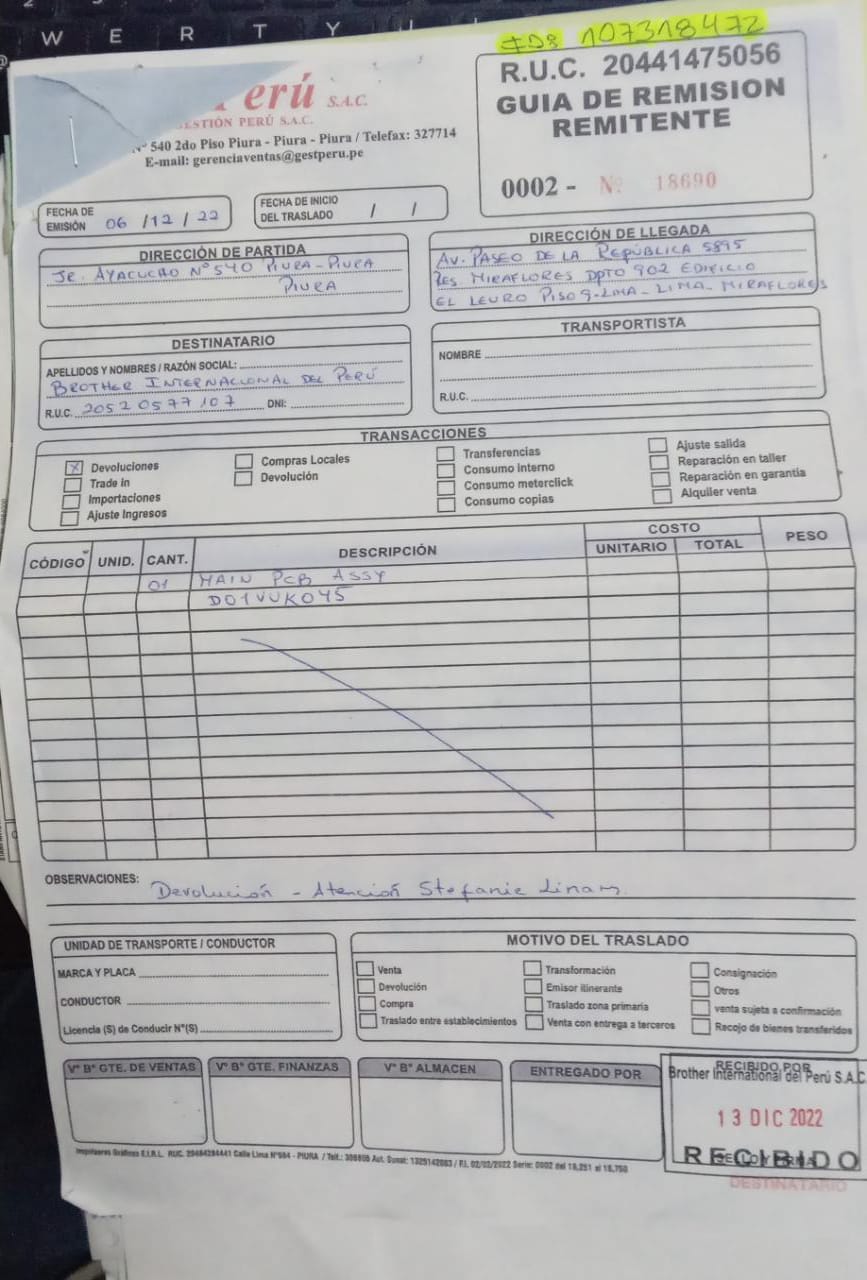 W E R T Y
107318472
R.U.C. 20441475056
GUIA DE REMISION
REMITENTE
0002 - Nº 18690
Perú S.A.C.
GESTIÓN PERÚ S.A.C.
Nº 540 2do Piso Piura - Piura - Piura / Telefax: 327714
E-mail: gerenciaventas@gestperu.pe
FECHA DE EMISIÓN 06 / 12 / 22
FECHA DE INICIO DEL TRASLADO / /
DIRECCIÓN DE PARTIDA
JR. AYACUCHO Nº 540 PIURA - PIURA
PIURA
DIRECCIÓN DE LLEGADA
AV. PASEO DE LA REPÚBLICA 5895
RES MIRAFLORES DPTO 902 EDIFICIO
EL LEURO PISO 9-LIMA-LIMA-MIRAFLORES
DESTINATARIO
APELLIDOS Y NOMBRES / RAZÓN SOCIAL:
BROTHER INTERNACIONAL DEL PERÚ
R.U.C. 20520577107 DNI:
TRANSPORTISTA
NOMBRE
R.U.C.
TRANSACCIONES
X Devoluciones
Trade in
Importaciones
Ajuste Ingresos
Compras Locales
Devolución
Transferencias
Consumo Interno
Consumo meterclick
Consumo copias
Ajuste salida
Reparación en taller
Reparación en garantía
Alquiler venta
CÓDIGO UNID. CANT. DESCRIPCIÓN COSTO UNITARIO TOTAL PESO
01 MAIN PCB ASSY
D01VUK045
OBSERVACIONES: Devolución - Atención Stefanie Linares
UNIDAD DE TRANSPORTE / CONDUCTOR
MARCA Y PLACA
CONDUCTOR
Licencia (S) de Conducir Nº(S)
MOTIVO DEL TRASLADO
Venta
Devolución
Compra
Traslado entre establecimientos
Transformación
Emisor itinerante
Traslado zona primaria
Venta con entrega a terceros
Consignación
Otros
venta sujeta a confirmación
Recojo de bienes transferidos
Vº Bº GTE. DE VENTAS
Vº Bº GTE. FINANZAS
Vº Bº ALMACEN
ENTREGADO POR
RECIBIDO POR
Brother International del Perú S.A.C
13 DIC 2022
RECIBIDO
DESTINATARIO